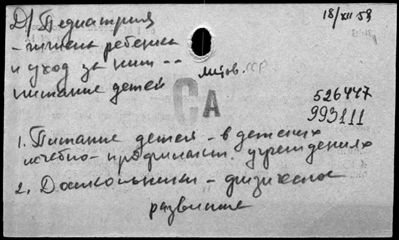 Д/ Педиатрия
18/XII 59
- гигиена ребенка
и уход за ним --
питание детей
Литов. ССР
СА
526447
993111
1. Питание детей - в детских
лечебно-профилакт. учреждениях
2. Дошкольники - физическое
развитие